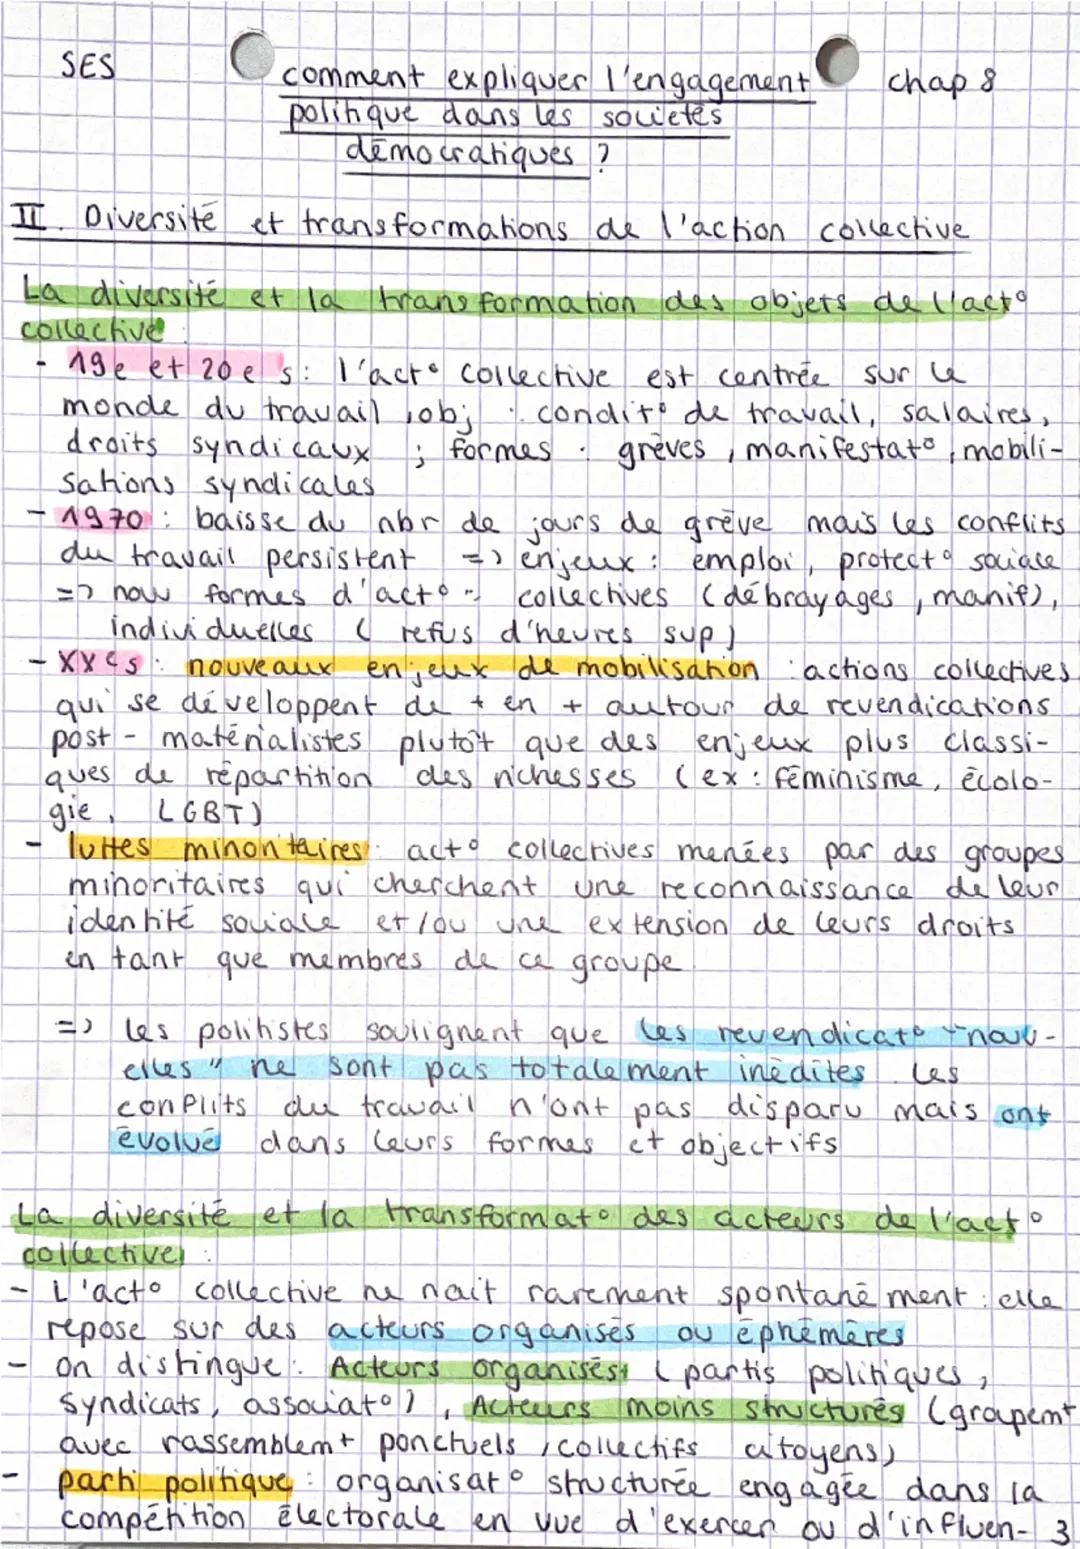 SES
comment expliquer l'engagement chap 8
politique dans les sociétés
démocratiques ?
II. Diversité et transformations de l'action collective
La diversité et la transformation des objets de l'act°
collective :
- 19e et 20e s : l'act° collective est centrée sur le
monde du travail, obj : condit° de travail, salaires,
droits syndicaux ; formes : grèves, manifestat°, mobili-
sations syndicales
- 1970 : baisse du nbr de jours de grève mais les conflits
du travail persistent => enjeux : emploi, protect° sociale
=> nouv formes d'act° : collectives (débrayages, manif),
individuelles (refus d'heures sup)
- XXes : nouveaux enjeux de mobilisation : actions collectives
qui se développent de + en + autour de revendications
post-matérialistes plutôt que des enjeux plus classi-
ques de répartition des richesses (ex : féminisme, écolo-
gie, LGBT)
- luttes minoritaires : act° collectives menées par des groupes
minoritaires qui cherchent une reconnaissance de leur
identité sociale et/ou une extension de leurs droits
en tant que membres de ce groupe.
=> les politistes soulignent que les revendicat° "nouv-
elles" ne sont pas totalement inédites. Les
conflits du travail n'ont pas disparu mais ont
évolué dans leurs formes et objectifs
La diversité et la transformat° des acteurs de l'act°
collective :
- L'act° collective ne nait rarement spontanément : elle
repose sur des acteurs organisés ou éphémères
- on distingue : Acteurs organisés (partis politiques,
syndicats, associat°), Acteurs moins structurés (groupemt
avec rassemblemt ponctuels, collectifs citoyens)
- parti politique : organisat° structurée engagée dans la
compétition électorale en vue d'exercer ou d'influen- 3